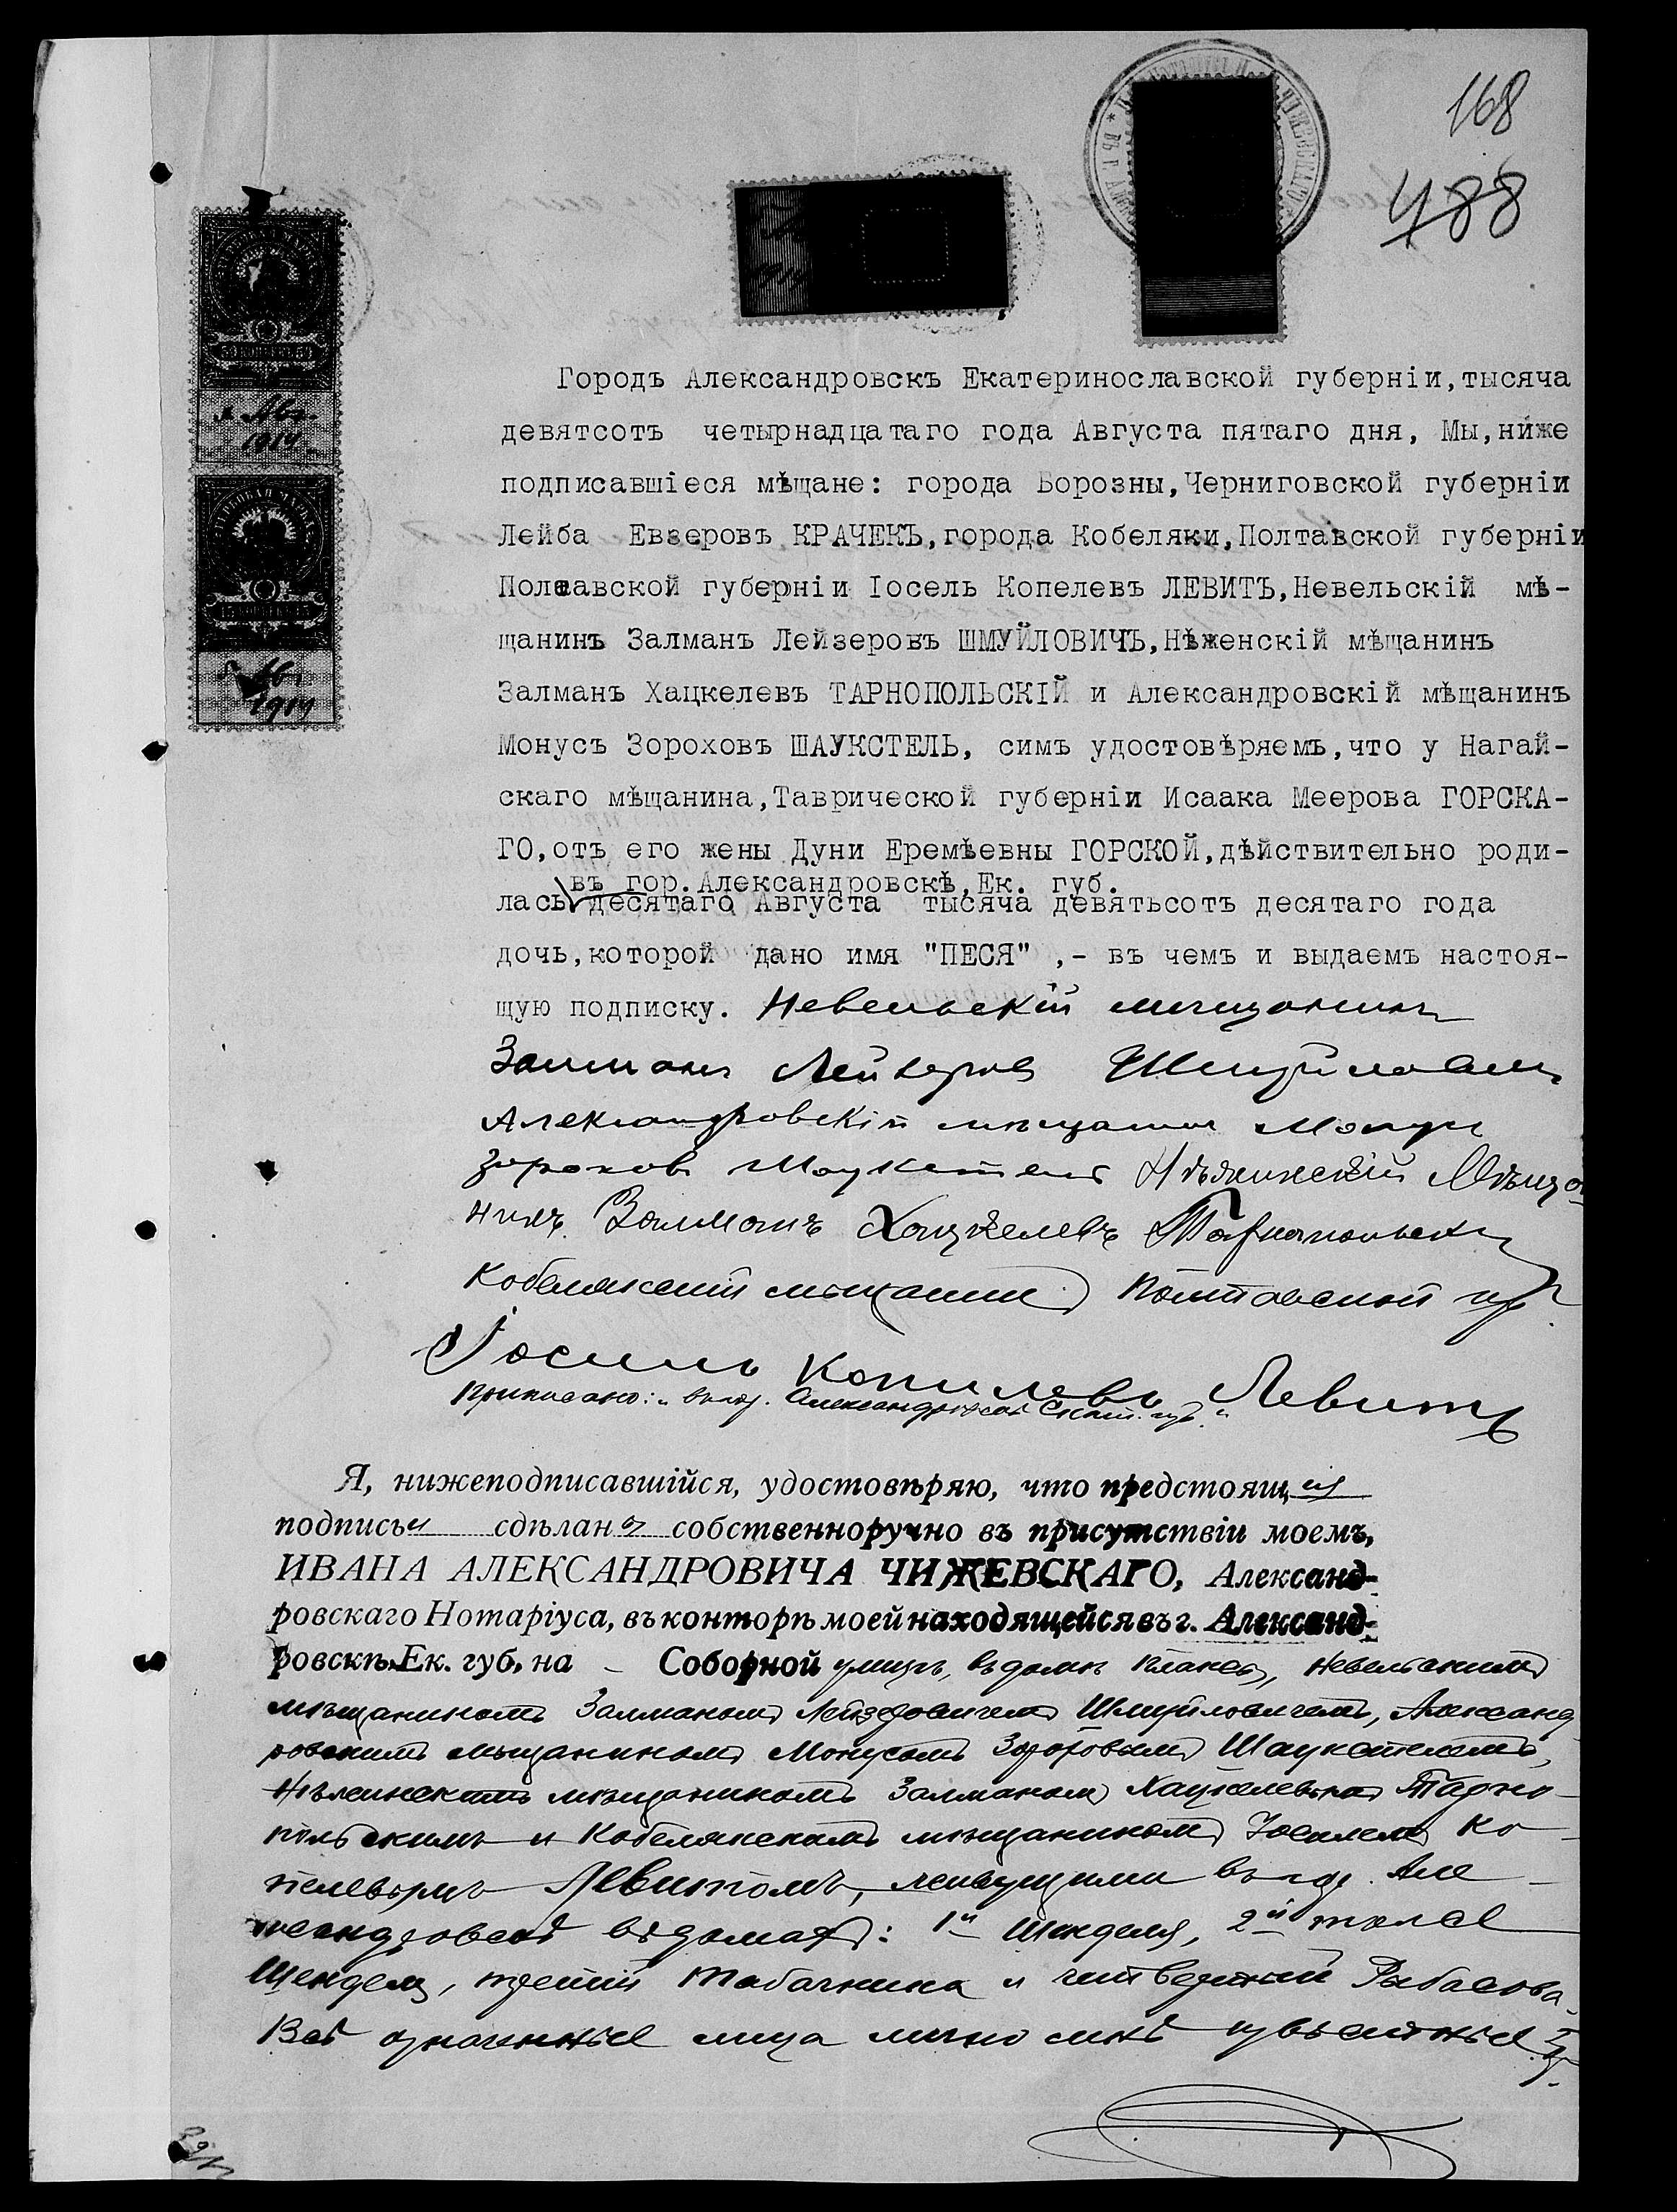 168
488
50 КОПѢЕКЪ 50
5 Авг.
1914
5 Авг.
1914
Городъ Александровскъ Екатеринославской губерніи,тысяча
девятсотъ четырнадцатаго года Августа пятаго дня, Мы,ниже
подписавшіеся мѣщане: города Борозны,Черниговской губерніи
Лейба Евзеровъ КРАЧЕКЪ,города Кобеляки,Полтавской губерніи
Полтавской губерніи Іосель Копелевъ ЛЕВИТЪ,Невельскій мѣ-
щанинъ Залманъ Лейзеровъ ШМУЙЛОВИЧЪ,Нѣженскій мѣщанинъ
Залманъ Хацкелевъ ТАРНОПОЛЬСКІЙ и Александровскій мѣщанинъ
Монусъ Зороховъ ШАУКСТЕЛЬ, симъ удостовѣряемъ,что у Нагай-
скаго мѣщанина,Таврической губерніи Исаака Меерова ГОРСКА-
ГО,отъ его жены Дуни Еремѣевны ГОРСКОЙ,дѣйствительно роди-
въ гор.Александровскѣ,Ек. губ.
лась десятаго Августа тысяча девятьсотъ десятаго года
дочь,которой дано имя "ПЕСЯ" ,- въ чемъ и выдаемъ настоя-
щую подписку. Невельскій мещанинъ
Залман Лейзеров Шмуйлович
Александровскій мещанин Монус
Зорохов Шаукстель Нѣжинскій Мѣща
нинъ Залманъ Хацкелевъ Тарнопольски
Кобелякский мещанин Полтавской губ.
Іосиль Копилевъ Левитъ
Приписано: "въ гор. Александровскѣ Екат. губ."
Я, нижеподписавшійся, удостовѣряю, что предстоящія
подписьи сдѣланы собственноручно въ присутствіи моемъ,
ИВАНА АЛЕКСАНДРОВИЧА ЧИЖЕВСКАГО, Александ-
ровскаго Нотаріуса, въ конторѣ моей находящейся въ г. Александ-
ровскѣ, Ек. губ, на - Соборной улицѣ, въ домѣ Невельскимъ
мѣщаниномъ Залманомъ Лейзеровичемъ Шмуйловичемъ, Александ
ровскимъ мѣщаниномъ Монусомъ Зороховымъ Шаукстелемъ,
Нѣжинскимъ мѣщаниномъ Залманомъ Хацкелевымъ Тарно-
польскимъ и Кобелякскимъ мѣщаниномъ Іоселемъ Ко-
пелевымъ Левитомъ, живущими въ гор. Але-
ксандровскѣ въ домахъ: 1й Шенделя, 2й тоже
Шенделя, третій Табачника и четвертый Рыбасова.
Всѣ означенные лица лично мнѣ извѣстные